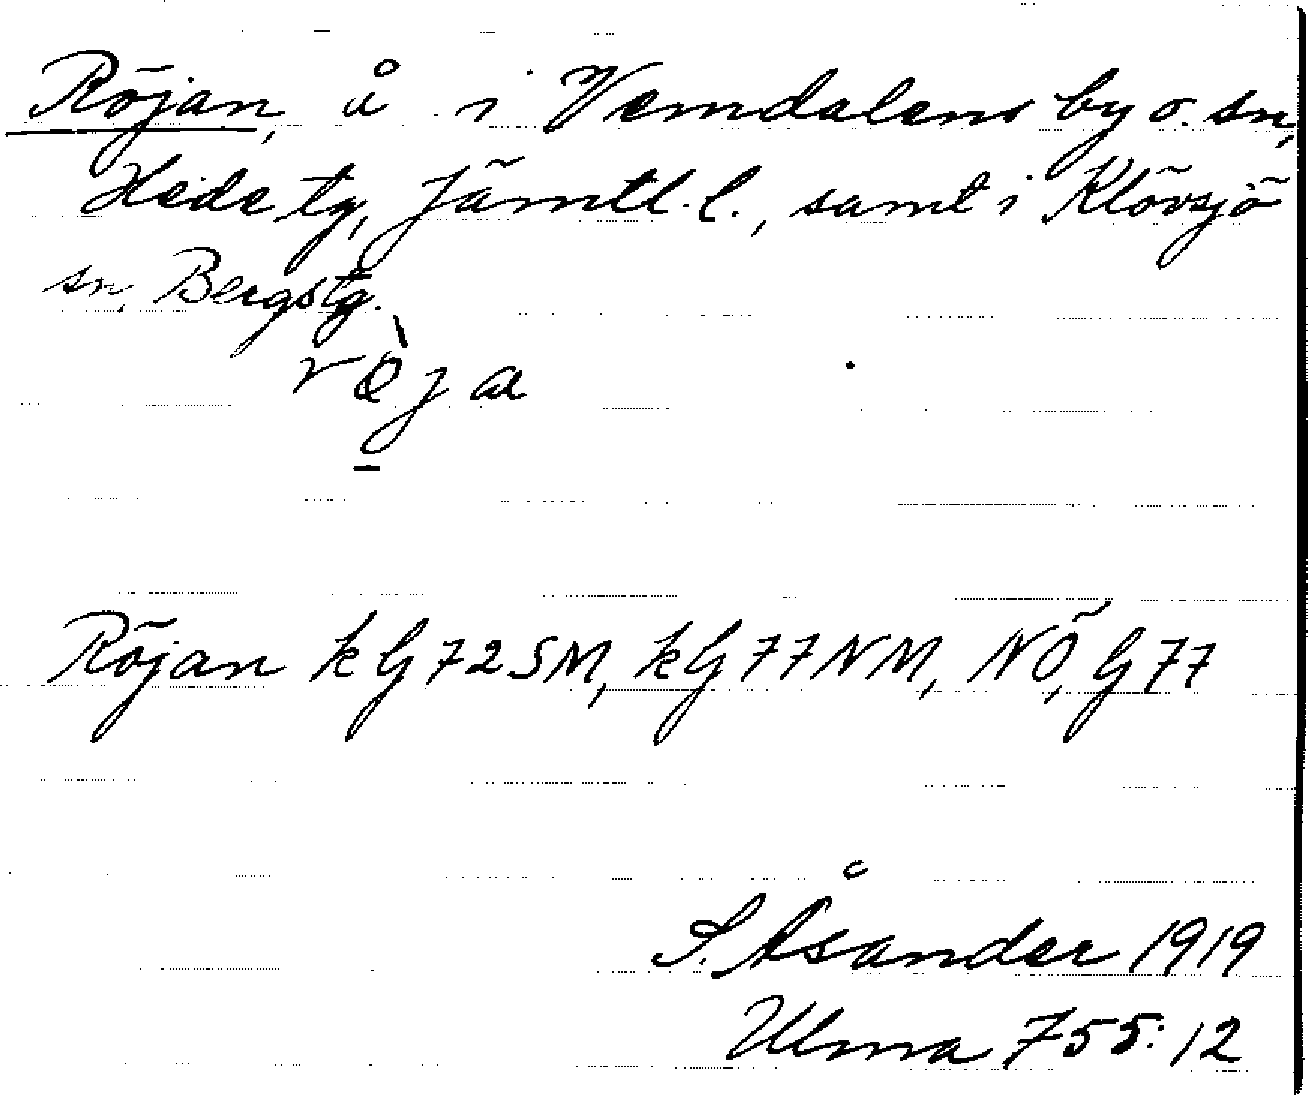 Röjan, å i Vemdalens by o. sn,
Hede tg, Jämtl. l., samt i Klövsjö
sn, Bergs tg.
Röjan kG72SM, kG77NM, NÖ, G77
S. Åsander 1919
Ulma 755:12